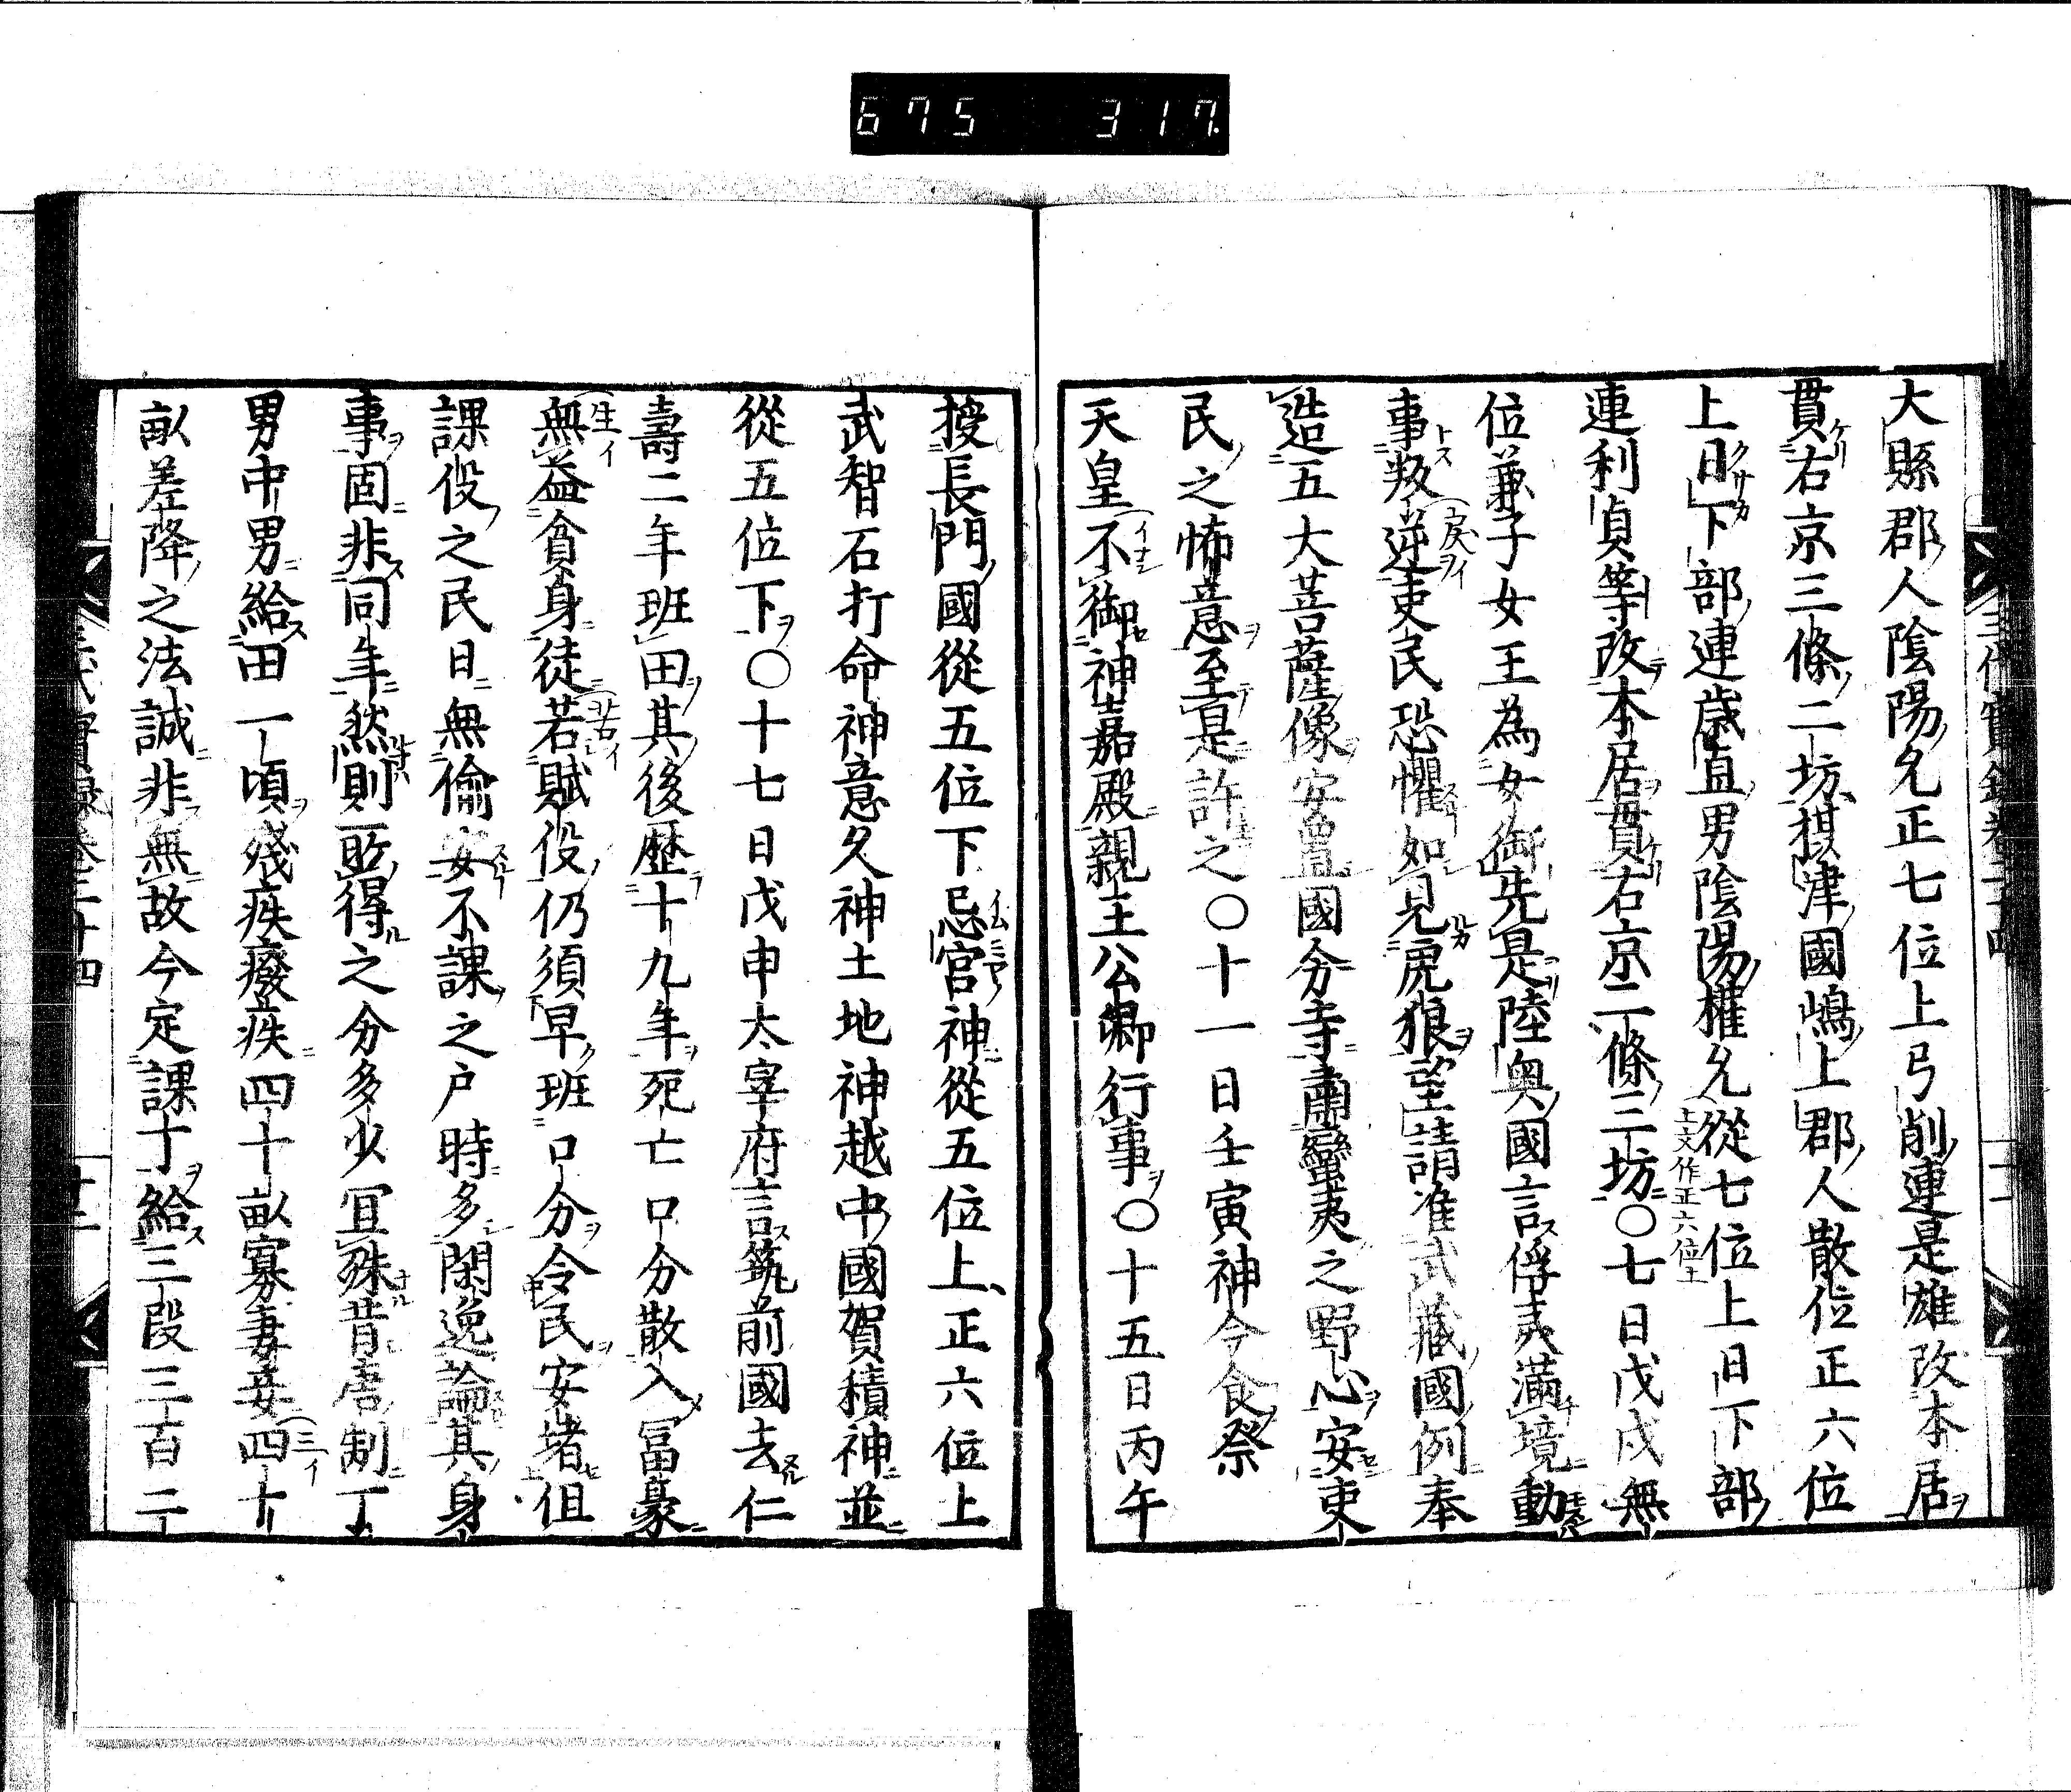 675 317
大縣郡人陰陽允正七位上弓削連是雄改本居
貫右京三條二坊攝津國嶋上郡人散位正六位
上日下部連歲直男陰陽權允從七位上日下部
上文作正六位上
連利貞等改本居貫右京二條三坊〇七日戊戌無
位兼子女王為女御先是陸奥國言俘夷滿境動
事叛逆吏民恐懼如見虎狼望請准武藏國例奉
造五大菩薩像安置國分寺肅蠻夷之野心安吏
民之怖意至是許之〇十一日壬寅神今食祭
天皇不御神嘉殿親王公卿行事〇十五日丙午
授長門國從五位下忌宮神從五位上正六位上
武智石打命神意久神土地神越中國賀積神並
從五位下〇十七日戊申太宰府言筑前國去仁
壽二年班田其後歷十九年死亡口分散入冨豪
無益貧身徒若賦役仍須早班口分令民安堵但
課役之民日無偷安不課之户時多閑逸論其身
事固非同年然則所得之分多少宜殊昔唐制丁
男中男給田一頃殘疾癈疾四十畝寡妻妾四十
畝差降之法誠非無故今定課丁給三段三百二
三代實錄卷二十四